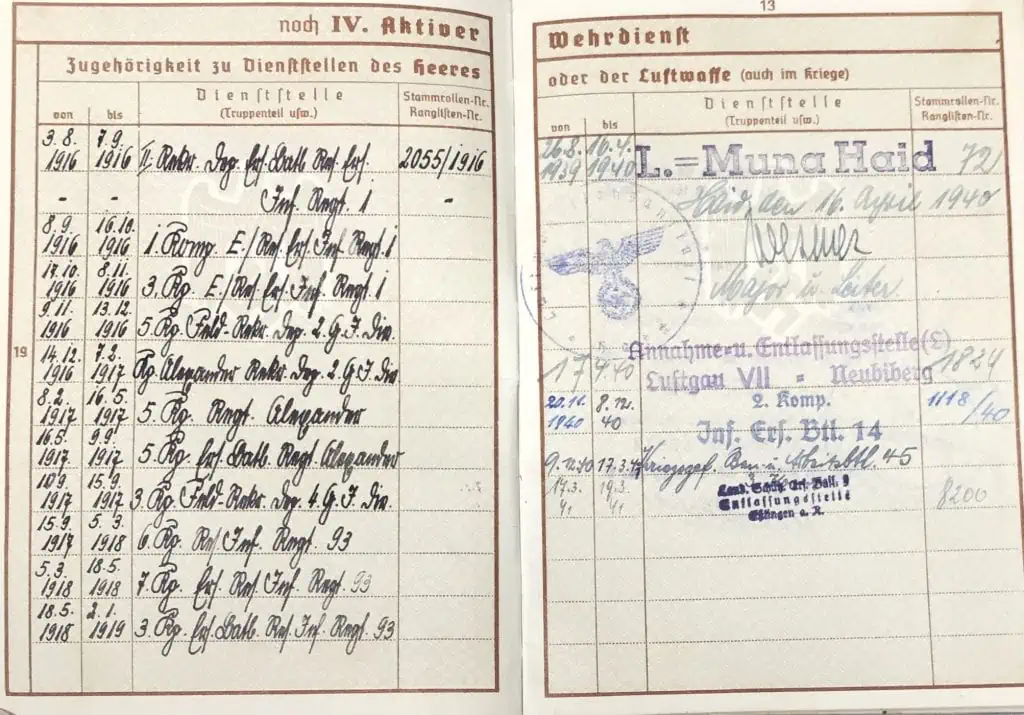 noch IV. Aktiver
Zugehörigkeit zu Dienststellen des Heeres
von
bis
Dienststelle
(Truppenteil usw.)
Stammrollen-Nr.
Ranglisten-Nr.
19
3.8. 7.9.
1916 1916 II. Rekr. Dep. Ers. Batl. Res. Ers. 2055/1916
- - Inf. Regt. 1 -
8.9. 16.10.
1916 1916 1. Komp. E./Res. Ers. Inf. Regt. 1
17.10. 8.11.
1916 1916 3. Kp. E./Res. Ers. Inf. Regt. 1
9.11. 13.12.
1916 1916 5. Kp. Feld-Rekr. Dep. 2. G. I. Div.
14.12. 7.2.
1916 1917 Kp. Alexander Rekr. Dep. 2. G. I. Div
8.2. 16.5.
1917 1917 5. Kp. Regt. Alexander
16.5. 9.9.
1917 1917 5. Kp. Ers. Batl. Regt. Alexander
10.9. 15.9.
1917 1917 3. Kp. Feld-Rekr. Dep. 4. G. I. Div.
15.9. 5.3.
1917 1918 6. Kp. Res. Inf. Regt. 93
5.3. 18.5.
1918 1918 7. Kp. Ers. Res. Inf. Regt. 93
18.5. 2.1.
1918 1919 3. Kp. Ers. Batl. Res. Inf. Regt. 93
13
Wehrdienst
oder der Luftwaffe (auch im Kriege)
von
bis
Dienststelle
(Truppenteil usw.)
Stammrollen-Nr.
Ranglisten-Nr.
26.8. 16.4.
1939 1940 L.=Muna Haid 72
Haid, den 16. April 1940
Major u. Leiter.
Annahme=u. Entlassungsstelle(L)
17 4.40 1824
Luftgau VII = Neubiberg
20.11. 8.12. 2. Komp. 1118/40
1940 40 Inf. Ers. Btl. 14
9.12.40 17.3.41 Kriegsgef. Bau- u. Arbeitsbtl. 45
17.3. 19.3. Land. Schütz. Ers. Batl. 9 8200
41 41 Entlassungsstelle
Eßlingen a. N.